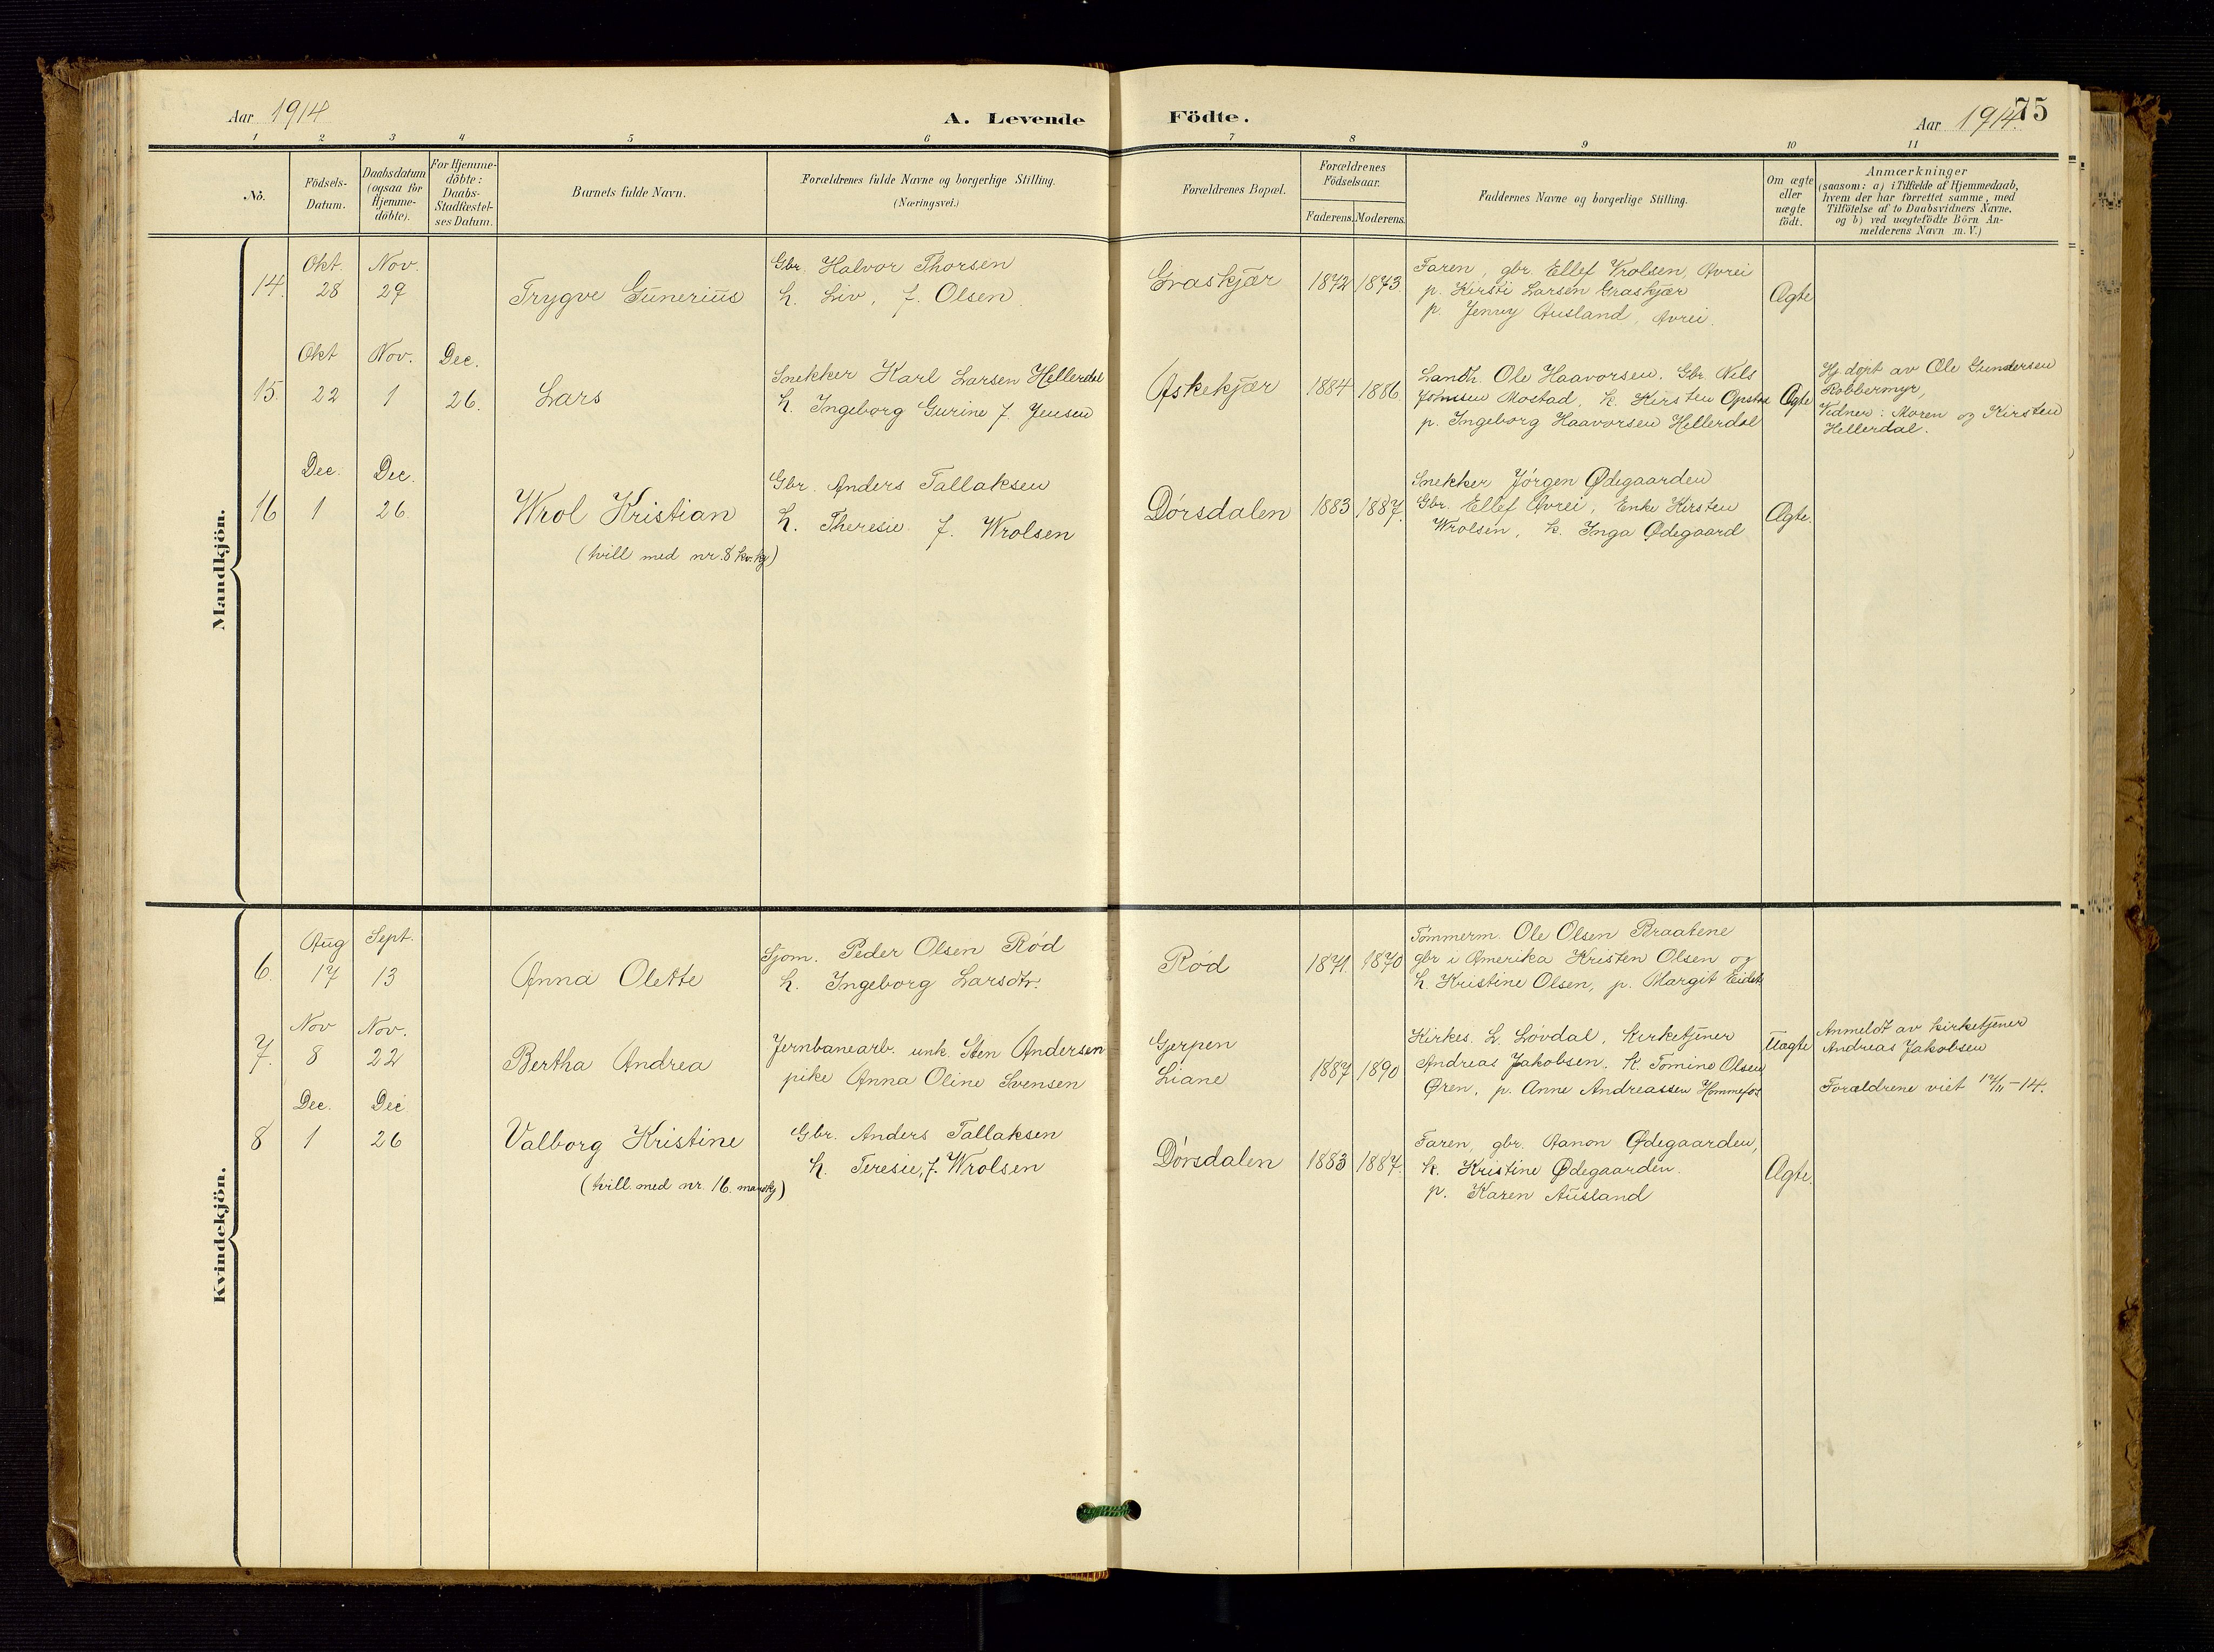 Aar 1914
A. Levende
Födte.
Aar 1914.
75
1 2 3 4 5 6 7 8 9 10 11
No.
Födsels-
Datum.
Daabsdatum
(ogsaa for
Hjemme-
döbte).
For Hjemme-
döbte:
Daabs-
Stadfæstel-
ses Datum.
Barnets fulde Navn.
Forældrenes fulde Navne og borgerlige Stilling.
(Næringsvei.)
Forældrenes Bopæl.
Forældrenes
Födselsaar.
Faderens.
Moderens.
Faddernes Navne og borgerlige Stilling.
Om ægte
eller
uægte
födt.
Anmærkninger
(saasom: a) i Tilfælde af Hjemmedaab,
hvem der har forrettet samme, med
Tilföielse af to Daabsvidners Navne,
og b) ved uægtefödte Börn An-
melderens Navn m. V.)
Mandkjön.
14.
Okt.
28
Nov.
29
Trygve Gunerius
Gbr. Halvor Thorsen
h. Liv, f. Olsen
Graskjær
1872
1873
Faren, gbr. Ellef Vrolsen, Avrei
p. Kirsti Larsen Graskjær
p. Jenny Ausland, Avrei.
Ægte
15.
Okt
22
Nov.
1
Dec.
26.
Lars
Snekker Karl Larsen Hellerdal
h. Ingeborg Gurine f. Jensen
Askekjær
1884
1886
Landh. Ole Haavorsen. Gbr. Nils
Jönssen Mostad, k. Kirsten Opsta
p. Ingeborg Haavorsen Hellerdal
Ægte
Hj. döpt av Ole Gundersen
Robbermyr,
Vidner: Moren og Kirsten
Hellerdal.
16
Dec.
1
Dec.
26
Wrol Kristian
(tvill med nr. 8 kv. kj)
Gbr. Anders Tallaksen
h. Theresie f. Wrolsen
Dörsdalen
1883
1887.
Snekker Jörgen Ødegaarden
Gbr. Ellef Avrei, Enke Kirsten
Wrolsen, k. Inga Ødegaard
Ægte.
Kvindekjön.
6.
Aug
17
Sept.
13
Anna Olette
Sjom. Peder Olsen Röd
h. Ingeborg Larsdtr.
Röd
1871.
1870
Tömmerm. Ole Olsen Braatene
gbr i Amerika Kristen Olsen og
h. Kristine Olsen, p. Margit Eidet
7.
Nov
8
Nov.
22
Bertha Andrea
Jernbanearb. unk. Sten Andersen
pike Anna Oline Svensen
Gjerpen
Liane
1887
1890
Kirkes. L. Lövdal, Kirketjener
Andreas Jakobsen, k. Tomine Olsen
Ören, p. Anne Andreassen Hommefos
Uægte
Anmeldt av kirketjener
Andreas Jakobsen
Forældrene viet 14/11-14.
8
Dec.
1
Dec
26
Valborg Kristine
(tvill. med nr. 16. mandkj)
Gbr. Anders Tallaksen
h. Teresie, f. Wrolsen
Dörsdalen
1883
1887.
Faren, gbr. Aanon Ødegaarden,
k. Kristine Ødegaarden.
p. Karen Ausland
Ægte.